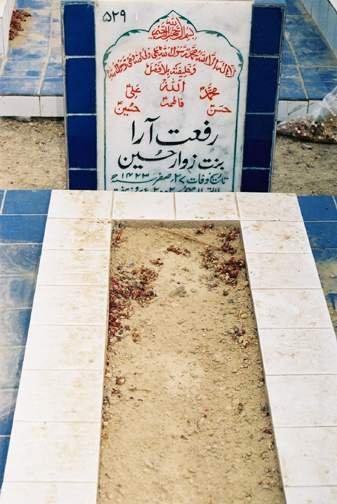 ۵۲۹
بسم اللہ الرحمن الرحیم
لا الہ الا اللہ محمد رسول اللہ علی ولی اللہ وصی رسول اللہ
وخلیفتہ بلا فصل
محمدؐ اللہ علیؑ
حسنؑ فاطمہؑ حسینؑ
رفعت آرا
بنت زوار حسین
تاریخ وفات ۲۷ صفر ۱۴۲۳ھ